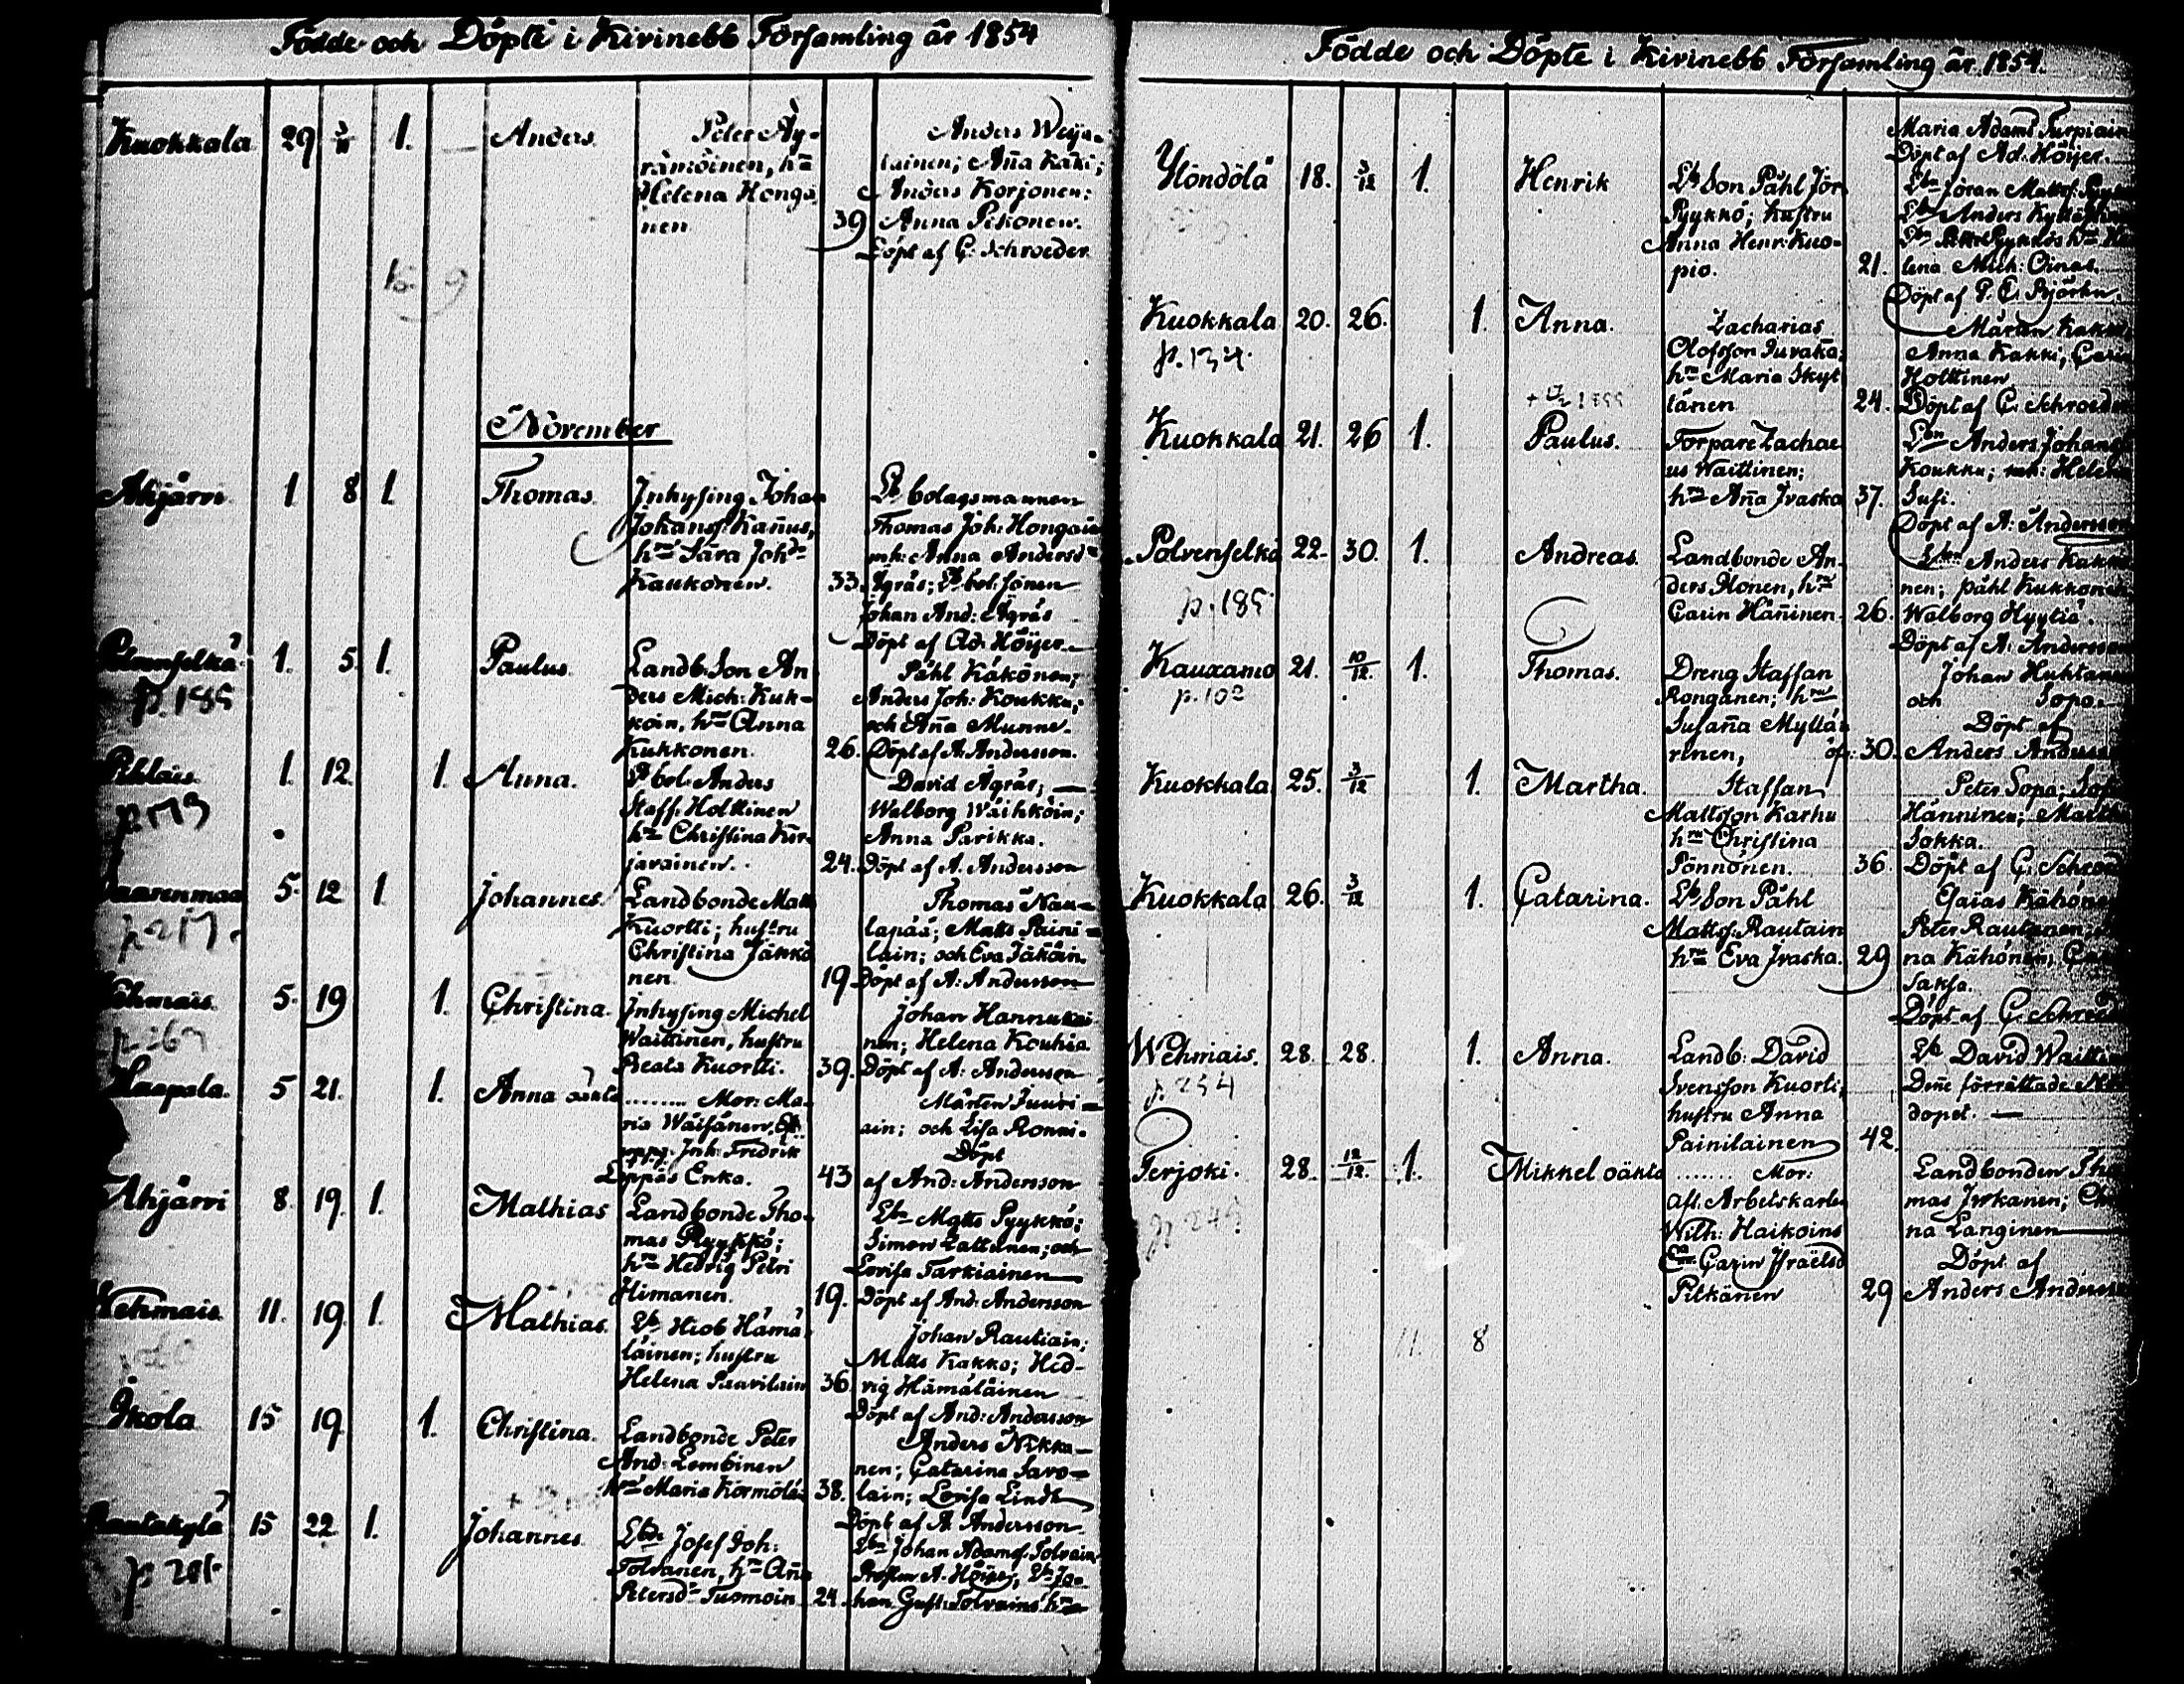 Födde och Döpte i Kivinebb Församling år 1854
Kuokkala 29 3/11 1. Anders. Peter Äy-
rämöinen, hn
Helena Hongi
nen 39
Anders Weija-
lainen; Aña Käki;
Anders Korjonen;
Anna Pekonen.
Döpt af G: Schroeder
15. 9
November
Ahjärvi 1 8 1. Thomas. Inhysing Johan
Johanss: Kañus,
hru Sara Johdr
Kaukonen. 33.
Lb bolagsmannen
Thomas Joh: Hongain
mh: Anna Andersdr
Ägräs; Lb bol: sonen
Johan And: Ägräs
Döpt af Ad: Höijer.
1. 5. 1. Paulus. Landb. Son An
ders Mich: Kuk-
koin, hru Anna
Kukkonen. 26.
p. 185
Påhl Käkönen;
Anders Joh: Koukku;
och Aña Munne.
Döpt af A: Andersson.
1. 12. 1. Anna. Lb bol: Anders
Staff: Holttinen
hru Christina Kur-
javainen. 24.
David Ägräs;
Walborg Wäihköin;
Anna Parikka.
Döpt af A. Andersson
5. 12 1. Johannes. Landbonde Matts
Kuortti; hustru
Christina Jäkkö
nen 19
Thomas Nau-
lapää; Matts Paini-
lain; och Eva Jäköin.
Döpt af A: Andersson
5. 19 1. Christina. Inhysing Michel
Waittinen, hustru
Beata Kuortti. 39.
Johan Hannukai
nen; Helena Kouhia
Döpt af A: Andersson
Haapala. 5 21. 1. Anna oäkta ........ Mor: Ma-
ria Wäisänen,
Joh: Fredrik
Eppäs Enka. 43
Mårten Juuri-
ain; och Lisa Ronni.
Döpt
af And: Andersson
Ahjärvi 8. 19. 1. Mathias Landbonde Tho-
mas Pyykkö;
hru Hedvig Petri
Himanen. 19.
Lbn Matts Pyykkö;
Simon Lattunen; och
Lovisa Tarkiainen
Döpt af And: Andersson
Wehmais 11. 19. 1. Mathias. Lb Hiob Hämä-
läinen; hustru
Helena Paavilain 36.
Johan Rautiain;
Matts Kakko; Hed-
vig Hämäläinen
Döpt af And: Andersson
Ikola 15 19. 1. Christina. Landbonde Peter
And: Lembinen
hru Maria Körmölä 38.
Anders Nikka-
nen; Catarina Savo-
lain; Lovisa Lindh
Döpt af A. Andersson.
Rantakylä 15 22. 1. Johannes. Lbde Josef Joh:
Tolvanen, hru Aña
Petersdr Tuomoin 24.
Lbn Johan Adamss: Tolvain
A. Höijer; Lbn Jo-
han Gust: Tolvains hru
Födde och Döpte i Kivinebb Församling år 1854.
Maria Adams Turpiain
Döpt af Ad: Höijer.
Ylöndölä 18. 3/12 1. Henrik Lb Son Påhl Jör:
Pyykkö; hustru
Anna Henr: Kuo-
pio. 21.
Lbn Jöran Matts: Pyyk
Lbn Anders Kyllä
Lbn Pyykkös hru He
lena Mich: Oinas.
Döpt af P. E. Björkn.
Kuokkala 20. 26. 1. Anna. Zacharias
Olofsson Juvaka;
hru Maria Skyt
tänen 24.
p. 134.
Mårten Kakk
Anna Kakki,
Holttinen
Döpt af G: Schroeder
Kuokkala 21. 26 1. Paulus. Torpare Zachae
us Waittinen;
hru Aña Ivaska 37.
Lbn Anders Johans
Koukku; mh: Helena
Susi.
Döpt af A: Andersson
Polvenselkä 22. 30. 1. Andreas. Landbonde An-
ders Ilonen, hru
Carin Häñinen. 26.
p. 185
Anders Kakk
nen; Påhl Kukkonen
Walborg Hyytiä.
Döpt af A: Andersson
Kauxamo 21. 10/12. 1. Thomas. Dreng Staffan
Ronganen; hru
Susaña Myllä-
rinen, 30.
p. 102
Johan Huhtan
och Sopo.
Döpt af
Anders Andersson
Kuokkala 25. 3/12 1. Martha. Staffan
Mattsson Karhu
hru Christina
Pönnönen. 36
Peter Sopa; Sof
Hänninen; Martha
Sokka.
Döpt af G: Schroed
Kuokkala 26. 3/12 1. Catarina. Lb Son Påhl
Mattss: Rautain
hru Eva Ivaska. 29
Esaias Kähönen
Peter Rautanen;
na Kähönen;
Saksa.
Döpt af G: Schroed
Wehmais. 28. 28. 1. Anna. Landb: David
Svensson Kuortti,
hustru Anna
Painilainen 42.
p. 254
Lb David Waittin
Deñe förrättade
dopet.
Terjoki. 28. 12/12. 1. Mikkel oäkta ....... Mor:
afl: Arbetskarlen
Wilh: Haikoins
Carin Israelsd
Pitkänen 29
Landbonden Tho
mas Jyrkänen;
na Länginen
Döpt af
Anders Andersson
11. 8